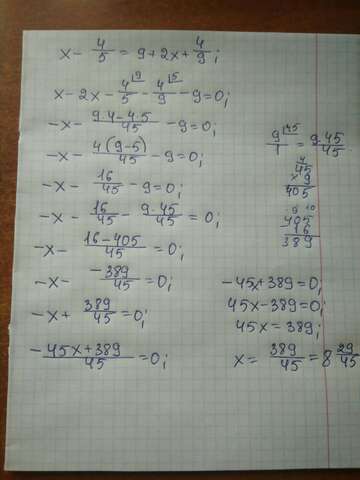 x - 4/5 = 9 + 2x + 4/9;
x - 2x - 4/5 ⌊9 - 4/9 ⌊5 - 9 = 0;
-x - (9·4 - 4·5)/45 - 9 = 0;
-x - 4(9-5)/45 - 9 = 0;
-x - 16/45 - 9 = 0;
-x - 16/45 - 9·45/45 = 0;
-x - (16 - 405)/45 = 0;
-x - -389/45 = 0;
-x + 389/45 = 0;
(-45x + 389)/45 = 0;
9/1 ⌊45 = 9·45/45
4
45
× 9
405
9 10
405
16
389
-45x + 389 = 0;
45x - 389 = 0;
45x = 389;
x = 389/45 = 8 29/45